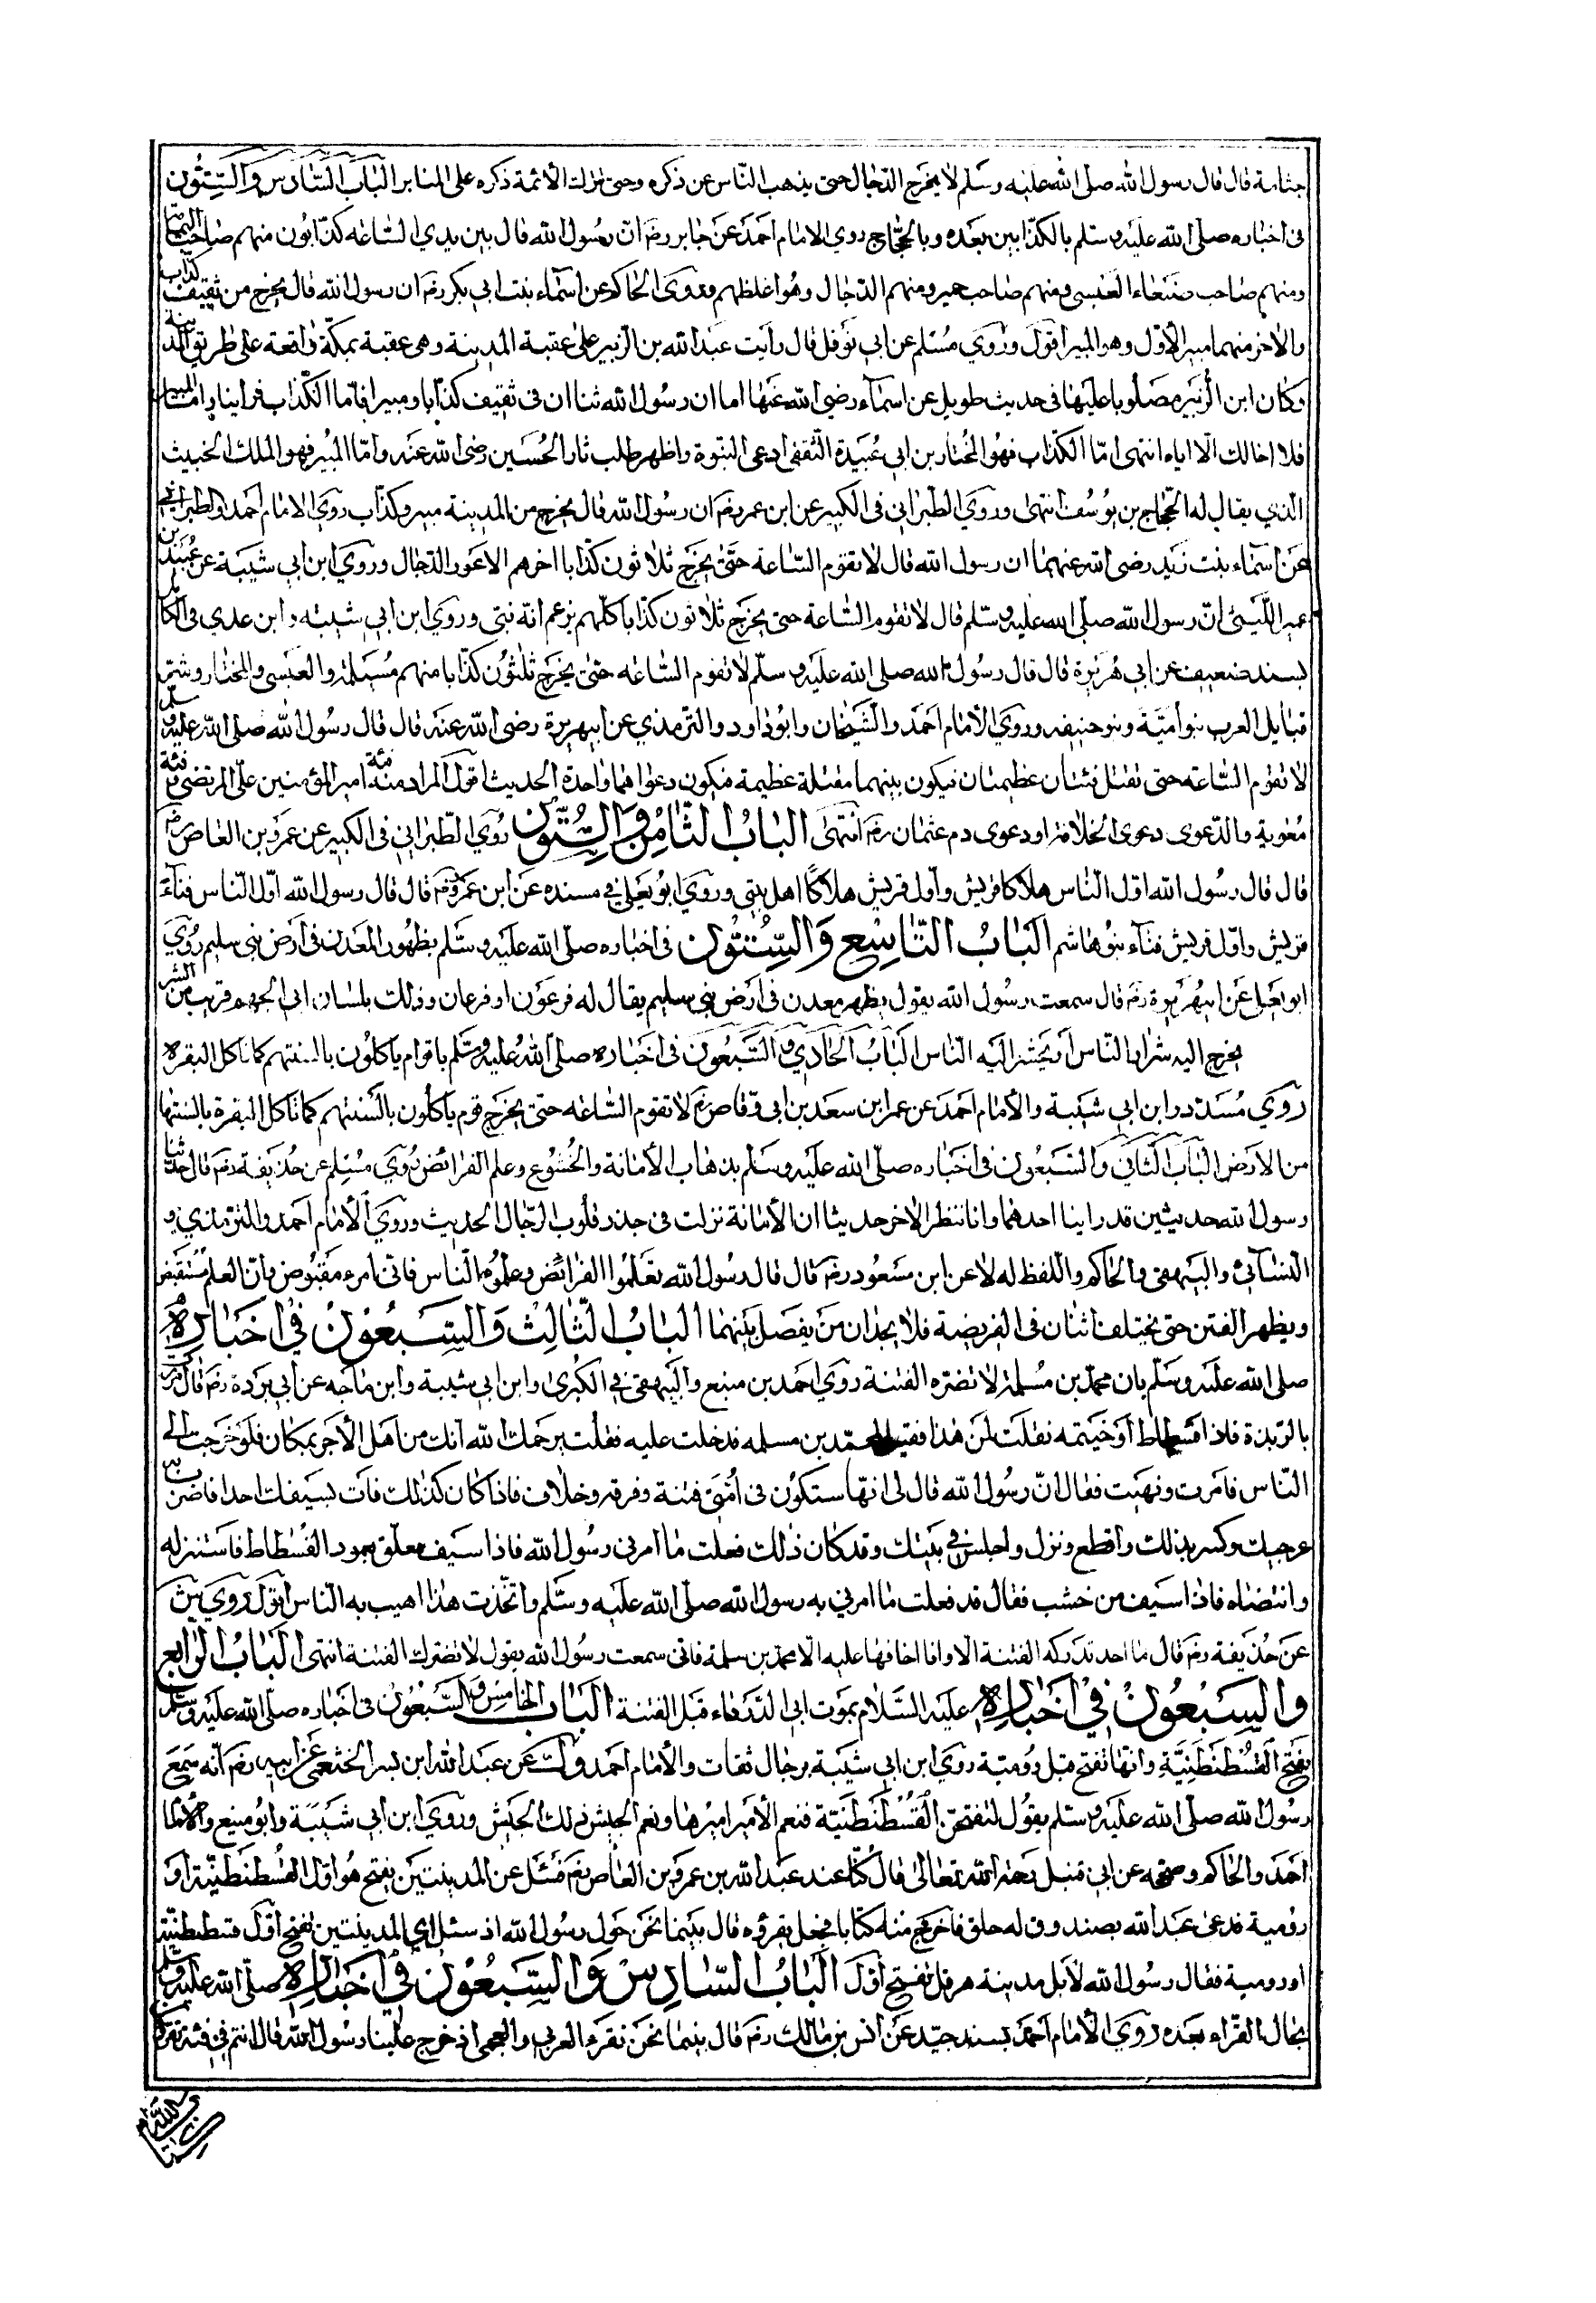 جثامة قال قال رسول الله صلى الله عليه وسلم لا يخرج الدجال حتى يذهب الناس عن ذكره وحتى تترك الأئمة ذكره على المنابر الباب السادس والستون
في اخباره صلى الله عليه وسلم بالكذابين بعده وبالحجاج روي الامام احمد عن جابر رضم ان رسول الله قال بين يدي الساعه كذابون منهم صاحب اليمامة
ومنهم صاحب صنعاء العنسي ومنهم صاحب حمير ومنهم الدجال وهو اعظمهم وروى الحاكم عن اسماء بنت ابي بكر رضم ان رسول الله قال يخرج من ثقيف كذاب
والاخر منهما مبير الأول وهو المبير اقول وروي مسلم عن ابي نوفل قال رأيت عبد الله بن الزبير على عقبة المدينة وهي عقبة بمكة واقعة على طريق المدينة
وكان ابن الزبير مصلوبا عليها في حديث طويل عن اسماء رضي الله عنها اما ان رسول الله ثنا ان في ثقيف كذابا ومبيرا فاما الكذاب فرايناه واما المبير
فلا اخالك الا اياه انتهى اما الكذاب فهو المختار بن ابي عبيدة الثقفي ادعى النبوة واظهر طلب ثار الحسين رضى الله عنه واما المبير فهو الملك الخبيث
الذي يقال له الحجاج بن يوسف انتهى وروي الطبراني في الكبير عن ابن عمر رضم ان رسول الله قال يخرج من المدينة مبير وكذاب روي الامام احمد والطبراني
عن اسماء بنت زيد رضى الله عنهما ان رسول الله قال لا تقوم الساعة حتى يخرج ثلاثون كذابا اخرهم الاعور الدجال وروي ابن ابي شيبة عن عبيد بن
عمير الليثي ان رسول الله صلى الله عليه وسلم قال لا تقوم الساعة حتى يخرج ثلاثون كذابا كلهم يزعم انه نبي وروي ابن ابي شيبه وابن عدي في الكامل
بسند ضعيف عن ابي هريرة قال قال رسول الله صلى الله عليه وسلم لا تقوم الساعه حتى يخرج ثلثون كذابا منهم مسيلمة والعنسي والمختار وشر
قبايل العرب بنو امية وبنو حنيفه وروي الأمام احمد والشيخان وابو داود والترمذي عن ابيهريرة رضى الله عنه قال قال رسول الله صلى الله عليه وسلم
لا تقوم الساعه حتى تقتل فئتان عظيمتان فيكون بينهما مقتلة عظيمة فيكون دعواهما واحدة الحديث اقول المراد منه فئة امير المؤمنين على المرتضى وفئة
معوية والدعوى دعوى الخلافة او دعوى دم عثمان رضم انتهى الباب الثامن والستون روي الطبراني في الكبير عن عمرو بن العاص رضم
قال قال رسول الله اول الناس هلاكا قريش وأول قريش هلاكا اهل بيتي وروي ابو يعلي في مسنده عن ابن عمرو رضم قال قال رسول الله اول الناس فناء
قريش واول قريش فناء بنو هاشم الباب التاسع والستون في اخباره صلى الله عليه وسلم بظهور المعدن في أرض بني سليم روي
ابو يعلى عن ابيهريرة رضم قال سمعت رسول الله يقول يظهر معدن في ارض بني سليم يقال له فرعون او فرعان وذلك بلسان ابي الجهم قريب من الشر
يخرج اليه شرار الناس او يحشر اليه الناس الباب الحادي والسبعون في اخباره صلى الله عليه وسلم باقوام ياكلون بالسنتهم كما تاكل البقره
روي مسدد وابن ابي شيبة والأمام احمد عن عمر ابن سعد بن ابي وقاص رضم لا تقوم الساعه حتى يخرج قوم ياكلون بالسنتهم كما تاكل البقرة بالسنتها
من الارض الباب الثاني والسبعون في اخباره صلى الله عليه وسلم بذهاب الأمانة والخشوع وعلم الفرائض روي مسلم عن حذيفة رضم قال حدثنا
رسول الله حديثين قد راينا احدهما وانا ننظر الاخر حديثا ان الأمانة نزلت في جذر قلوب الرجال الحديث وروي الأمام احمد والترمذي و
النسائي والبيهقي والحاكم واللفظ له لا عن ابن مسعود رضم قال قال رسول الله تعلموا الفرائض وعلموه الناس فاني امرء مقبوض وان العلم سيقبض
ويظهر الفتن حتى يختلف اثنان في الفريضة فلا يجدان من يفصل بينهما الباب الثالث والسبعون في اخباره
صلى الله عليه وسلم بان محمد بن مسلمة لا تضره الفتنة روي احمد بن منيع والبيهقي في الكبرى وابن ابي شيبة وابن ماجه عن أبي بردة رضم قال مررت
بالربذة فاذا فسطاط او خيمة فقلت لمن هذا فقيل لمحمد بن مسلمه فدخلت عليه فقلت يرحمك الله انك من اهل الأجر بمكان فلو خرجت الى
الناس فامرت ونهيت فقال ان رسول الله قال لي انها ستكون في امتي فتنة وفرقه وخلاف فاذا كان كذلك فات بسيفك احدا فاضرب به
وكسر بذلك واقطع ونزل واجلس في بيتك وقد كان ذلك فعلت ما امرني رسول الله فاذا سيف معلق بعمود الفسطاط فاستنزله
وانتضاه فاذا سيف من خشب فقال قد فعلت ما امرني به رسول الله صلى الله عليه وسلم واتخذت هذا اهيب به الناس اقول روي
عن حذيفة رضم قال ما احد تدركه الفتنة الا وانا اخافها عليه الا محمد بن سلمة فاني سمعت رسول الله يقول لا تضرك الفتنة انتهى الباب الرابع
والسبعون في اخباره عليه السلام بموت ابي الدرداء قبل الفتنة الباب الخامس والسبعون في اخباره صلى الله عليه وسلم
بفتح القسطنطنية وانها تفتح قبل رومية روي ابن ابي شيبة برجال ثقات والأمام احمد عن عبد الله ابن بسر الخثعمي عن ابيه رضم انه سمع
رسول الله صلى الله عليه وسلم يقول لتفتحن القسطنطنية فنعم الأمير اميرها ونعم الجيش ذلك الجيش وروي ابن ابي شيبة وابو منيع والأمام
احمد والحاكم وصححه عن ابي قبيل رحمه الله تعالى قال كنا عند عبد الله بن عمرو بن العاص رضم فسئل عن المدينتين يفتح هو اول القسطنطنية او
رومية فدعى عبد الله بصندوق له حلق فاخرج منه كتابا فجعل يقرؤه قال بينما نحن حول رسول الله اذ سئل اي المدينتين تفتح اول قسطنطنية
او رومية فقال رسول الله لا بل مدينة هرقل تفتح اول الباب السادس والسبعون في اخباره صلى الله عليه وسلم
بحال القراء بعده روي الأمام احمد بسند جيد عن انس بن مالك رضم قال بينما نحن نقرء والعربي والعجمي اذ خرج علينا رسول الله قال انتم في فئة